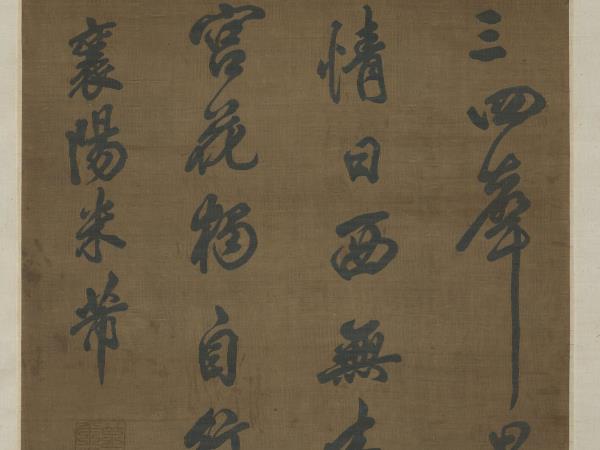 三四聲
情日西無
宮花獨自
襄陽米芾